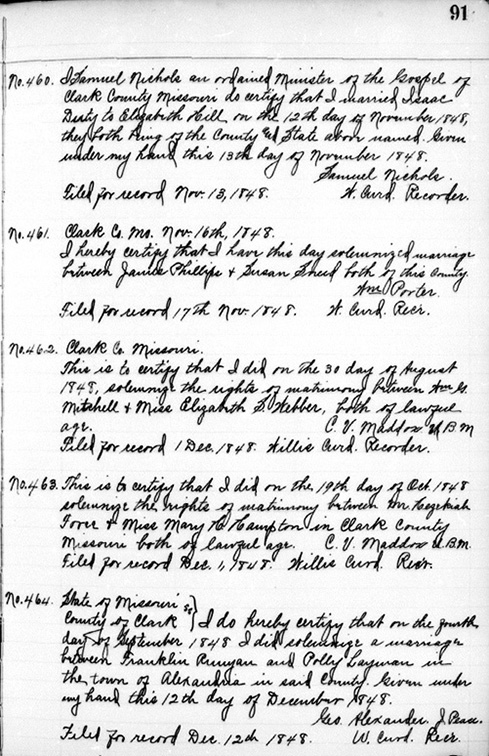 91
No. 460. I Samuel Nichols an ordained Minister of the Gospel of
Clark County Missouri do certify that I married Isaac
Duty to Elizabeth Hill, on the 12th day of November 1848,
they both being of the County and State above named. Given
under my hand this 13th day of November 1848.
Samuel Nichols.
Filed for record Nov. 13, 1848. W. Curd Recorder.
No. 461. Clark Co. Mo. Nov. 16th, 1848.
I hereby certify that I have this day solemnized marriage
between James Phillips & Susan Sneed both of this County
Wm Porter.
Filed for record 17th Nov. 1848. W. Curd. Recr.
No. 462. Clark Co. Missouri.
This is to certify that I did on the 30 day of August
1848, solemnize the rights of matrimony between Wm G.
Mitchell & Miss Elizabeth S. Webber, both of lawful
age. C. V. Maddox U B M
Filed for record 1 Dec. 1848. Willis Curd. Recorder.
No. 463. This is to certify that I did on the 19th day of Oct. 1848
solemnize the rights of matrimony between Mr. Hezekiah
& Miss Mary Hampton in Clark County
Missouri both of lawful age. C. V. Maddox U.B.M.
Filed for record Dec. 1, 1848. Willis Curd. Recr.
No. 464. State of Missouri
County of Clark } I do hereby certify that on the fourth
day of September 1848 I did solemnize a marriage
between Franklin Runyan and Polly Layman in
the town of Alexandria in said County. Given under
my hand this 12th day of December 1848.
Geo. Alexander. J. Peace.
Filed for record Dec. 12th 1848. W. Curd. Recr.